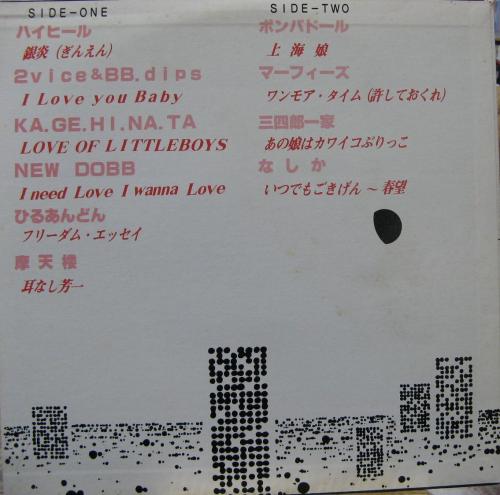 SIDE-ONE
ハイヒール
銀炎(ぎんえん)
2vice&BB.dips
I Love you Baby
KA.GE.HI.NA.TA
LOVE OF LITTLEBOYS
NEW DOBB
I need Love I wanna Love
ひるあんどん
フリーダム・エッセイ
摩天楼
耳なし芳一
SIDE-TWO
ポンパドール
上海娘
マーフィーズ
ワンモア・タイム(許しておくれ)
三四郎一家
あの娘はカワイコぶりっこ
なしか
いつでもごきげん〜春望